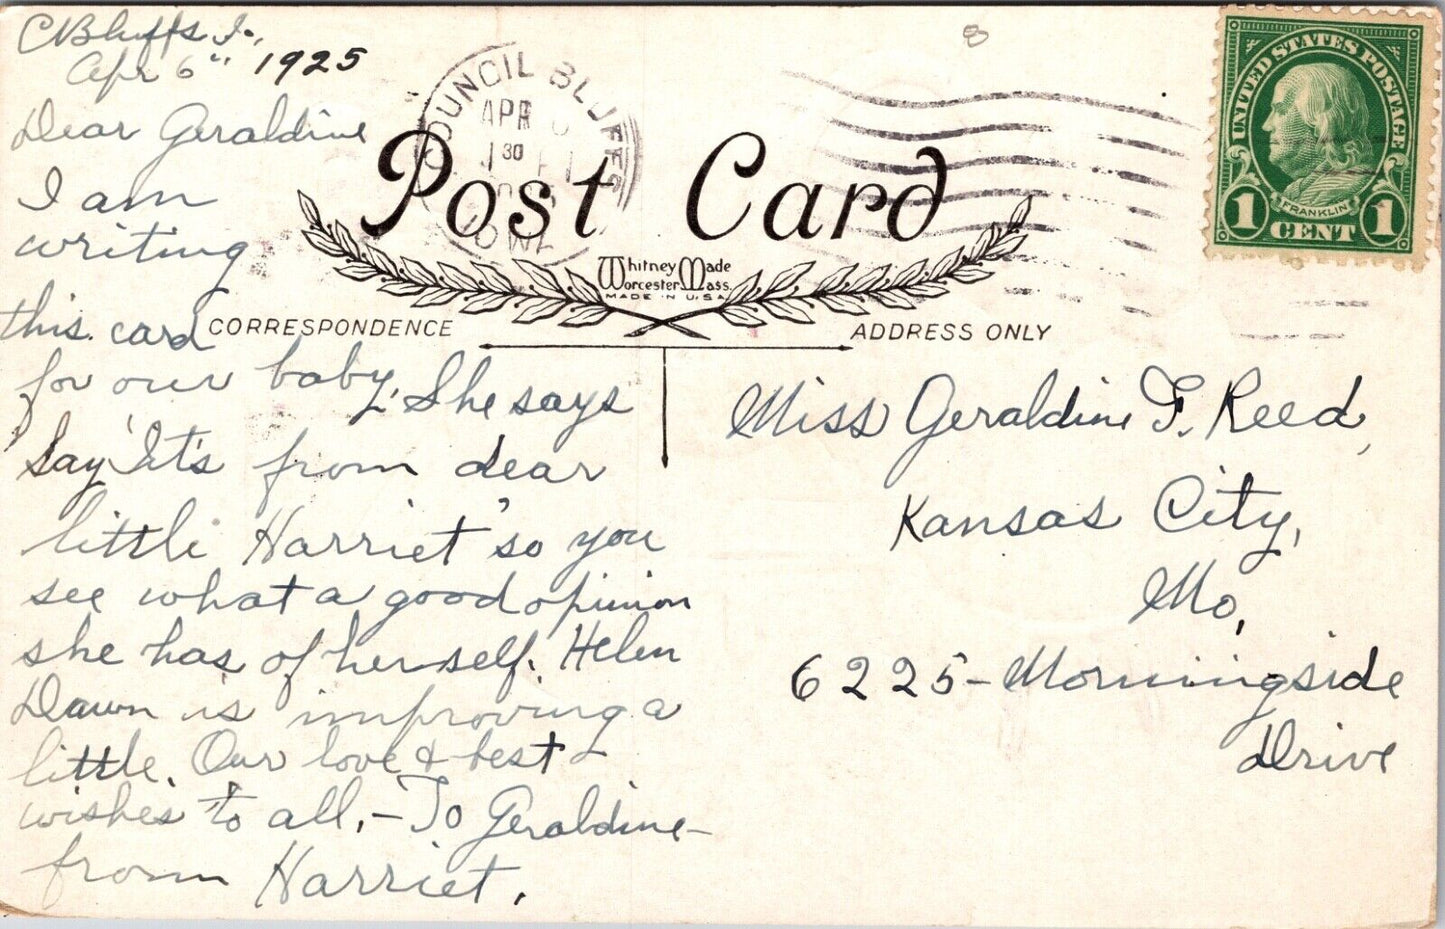 C Bluffs Ia.,
Apr 6" 1925
Dear Geraldine
I am
writing
this card
for our baby. She says
say 'It's from dear
little Harriet' so you
see what a good opinion
she has of herself. Helen
Dawn is improving a
little. Our love & best
wishes to all. – To Geraldine –
from Harriet.
COUNCIL BLUFFS
APR
30
IOWA
Post Card
Whitney Made
Worcester Mass.
MADE IN U.S.A.
CORRESPONDENCE
ADDRESS ONLY
8
UNITED STATES POSTAGE
FRANKLIN
1 CENT 1
Miss Geraldine F. Reed,
Kansas City,
Mo,
6225 – Morningside
Drive